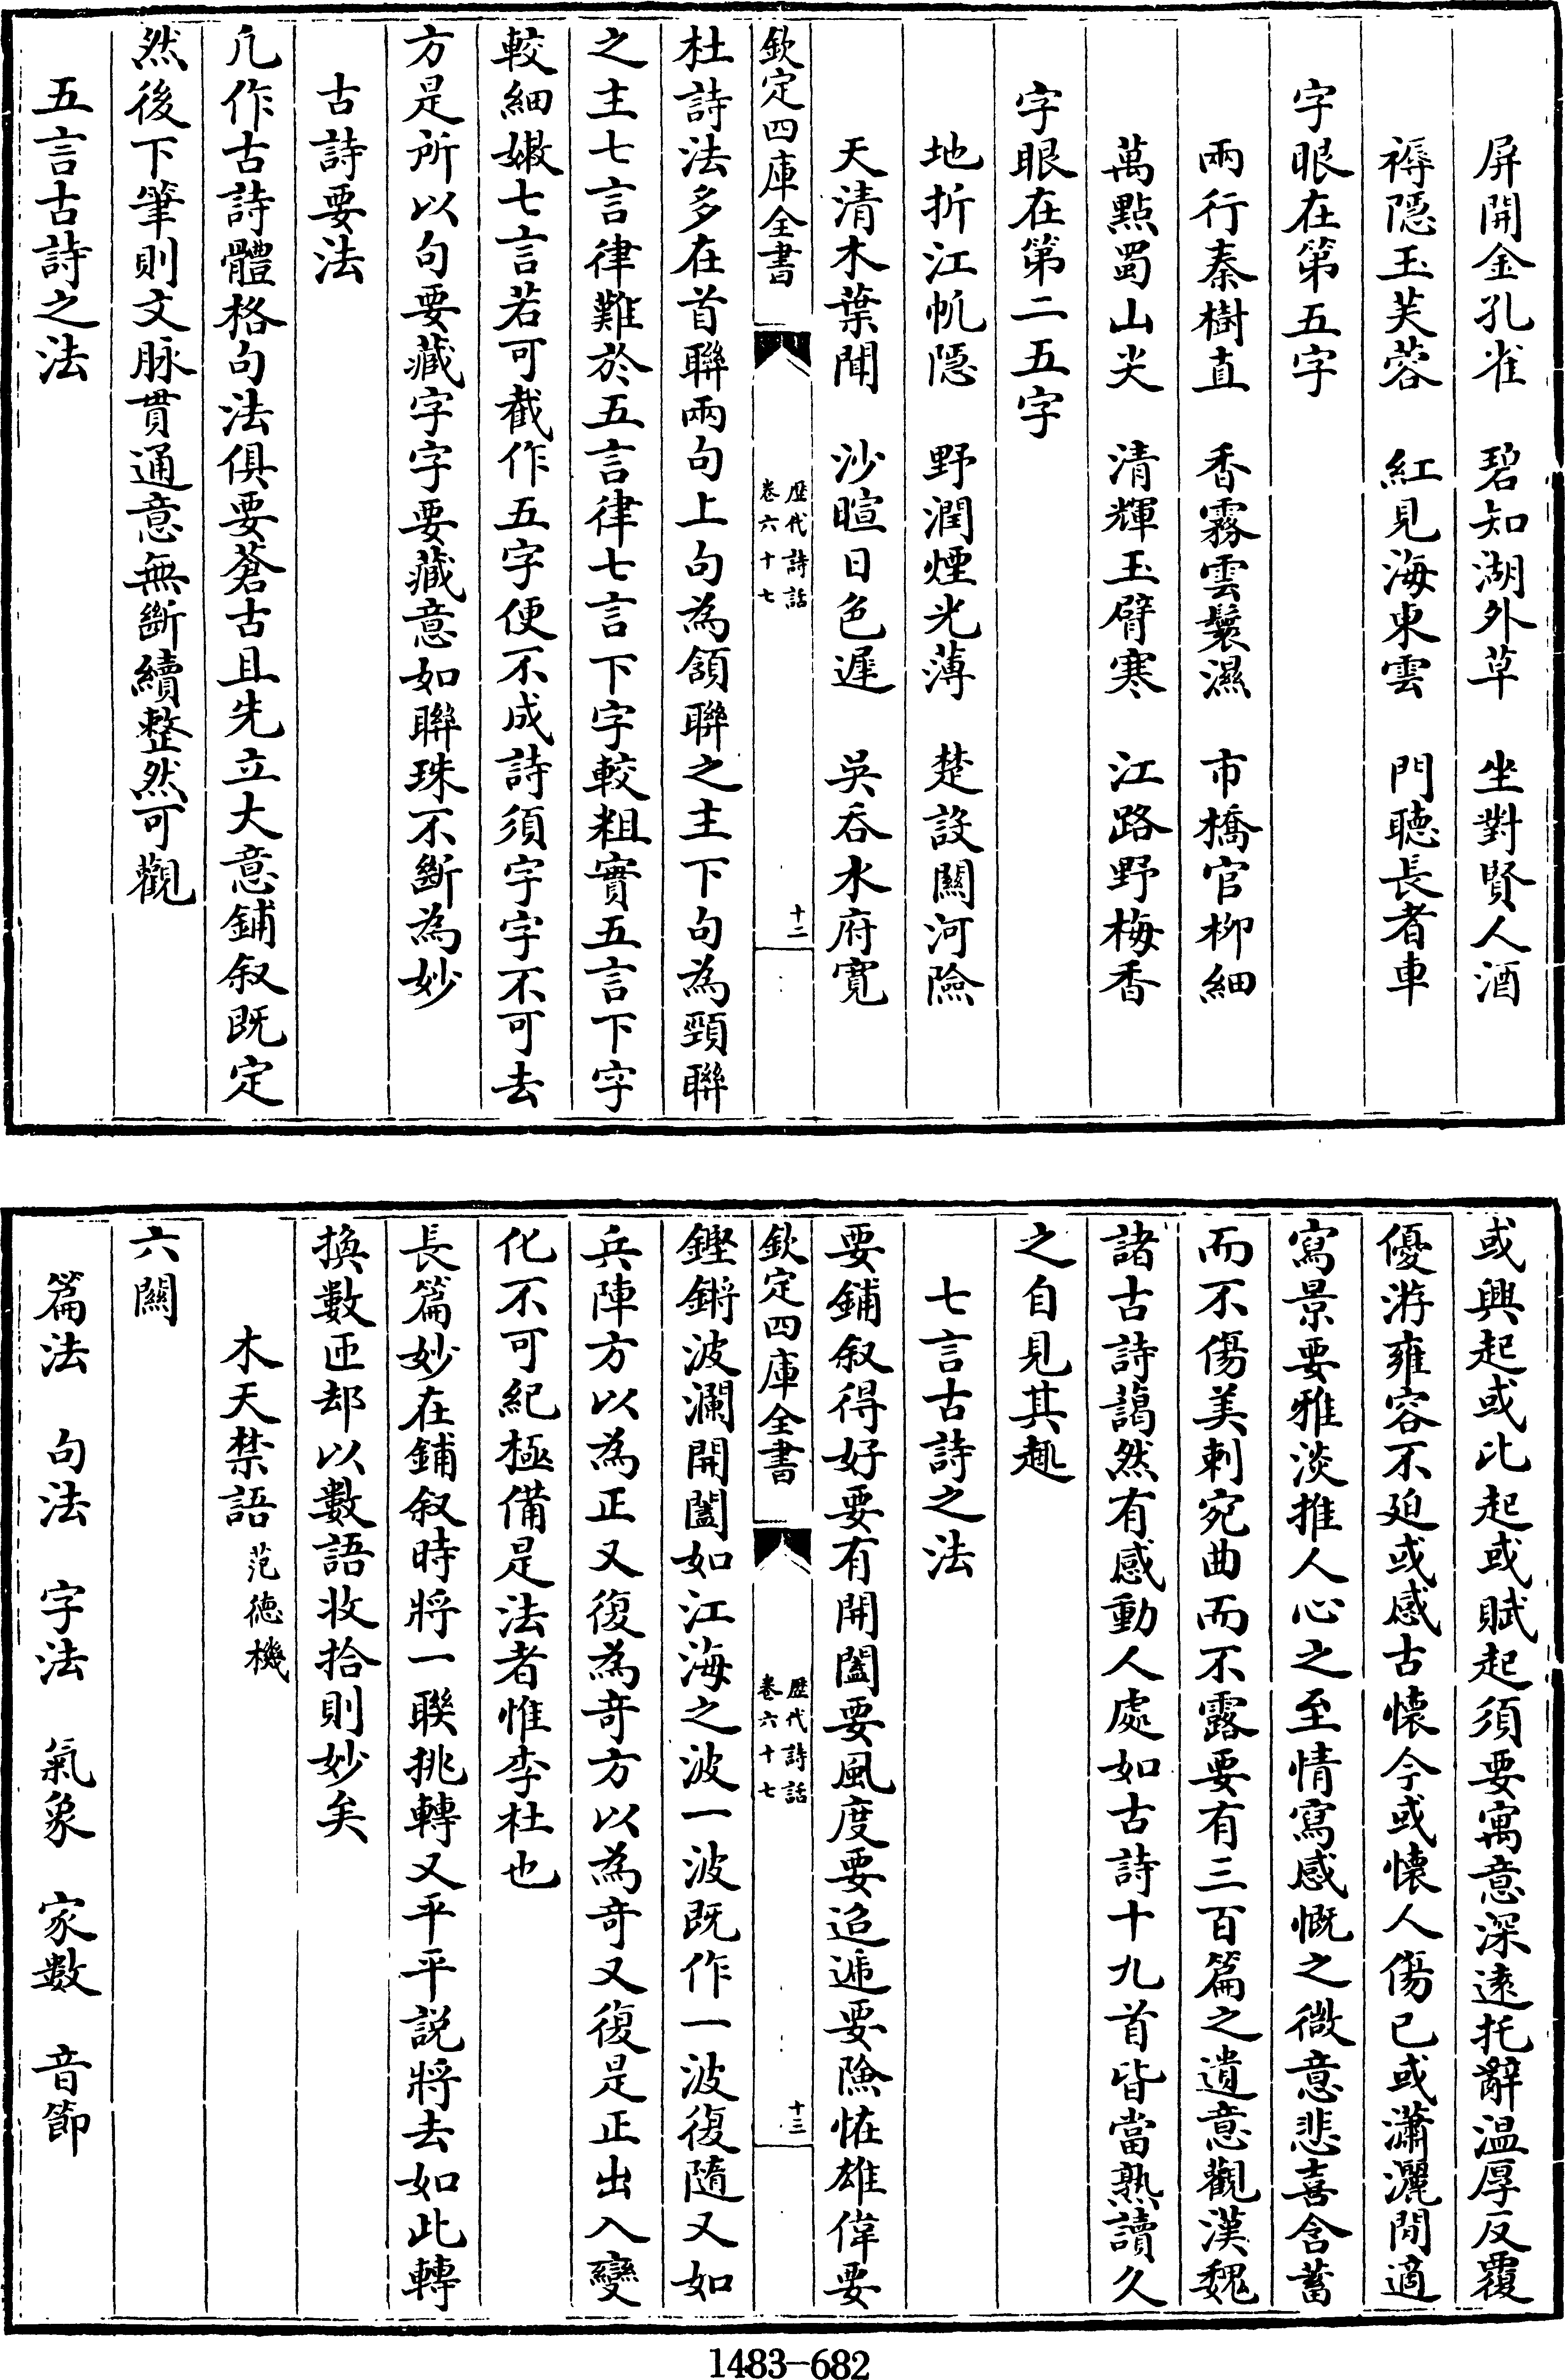 屏開金孔雀　碧知湖外草　坐對賢人酒
褥隱玉芙蓉　紅見海東雲　門聽長者車
字眼在第五字
兩行秦樹直　香霧雲鬟濕　市橋官柳細
萬點蜀山尖　清輝玉臂寒　江路野梅香
字眼在第二五字
地折江帆隱　野潤煙光薄　楚設關河險
天清木葉聞　沙暄日色遲　吳吞水府寛
欽定四庫全書　歴代詩話卷六十七　十二
杜詩法多在首聯兩句上句為頷聯之主下句為頸聯
之主七言律難於五言律七言下字較粗實五言下字
較細嫩七言若可截作五字便不成詩須字字不可去
方是所以句要藏字字要藏意如聯珠不斷為妙
古詩要法
凢作古詩體格句法俱要蒼古且先立大意鋪叙既定
然後下筆則文脉貫通意無斷續整然可觀
五言古詩之法
或興起或比起或賦起須要寓意深逺托辭温厚反覆
優游雍容不廹或感古懐今或懐人傷已或瀟灑閒適
寫景要雅淡推人心之至情寫感慨之微意悲喜含蓄
而不傷美刺宛曲而不露要有三百篇之遺意觀漢魏
諸古詩藹然有感動人處如古詩十九首皆當熟讀久
之自見其趣
七言古詩之法
要鋪叙得好要有開闔要風度要迢遞要險恠雄偉要
欽定四庫全書　歴代詩話卷六十七　十三
鏗鏘波瀾開闔如江海之波一波既作一波復隨又如
兵陣方以為正又復為奇方以為奇又復是正出入變
化不可紀極備是法者惟李杜也
長篇妙在鋪叙時將一聯挑轉又平平説將去如此轉
換數匝却以數語收拾則妙矣
木天禁語　范徳機
六關
篇法　句法　字法　氣象　家數　音節
1483-682